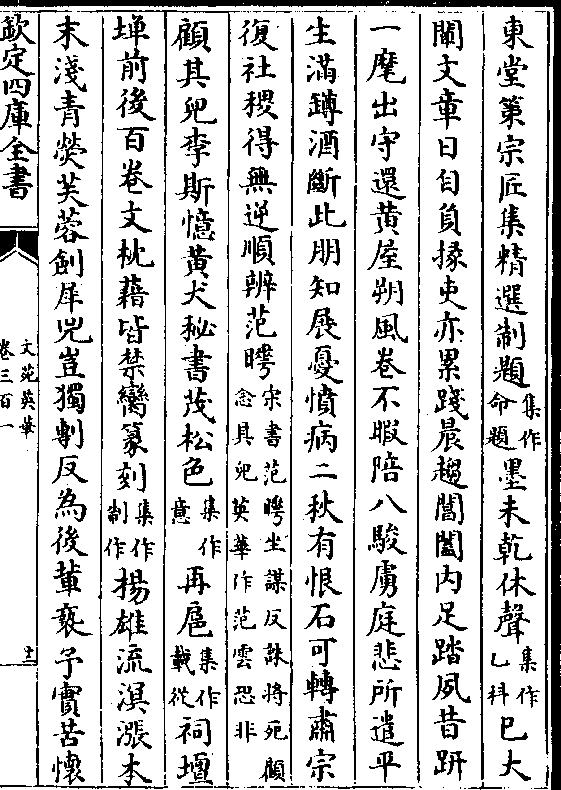 東堂第宗匠集精選制題集作命題墨未乾休聲集作乙科已大
闡文章日自負掾吏亦累踐晨趨閶闔内足踏夙昔趼
一麾出守還黄屋朔風卷不暇陪八駿虜庭悲所遣平
生滿罇酒斷此朋知展憂憤病二秋有恨石可轉肅宗
復社稷得無逆順辨范曄宋書范曄坐謀反誅將死顧念其兒英華作范雲恐非
顧其兒李斯憶黄犬秘書茂松色集作意再扈集作載從祠壇
墠前後百卷文枕藉皆禁臠篆刻集作制作揚雄流溟漲本
末淺青熒芙蓉劍犀兕豈獨剸反為後輩褻予實苦懷
欽定四庫全書
文苑英華
卷三百一
十二